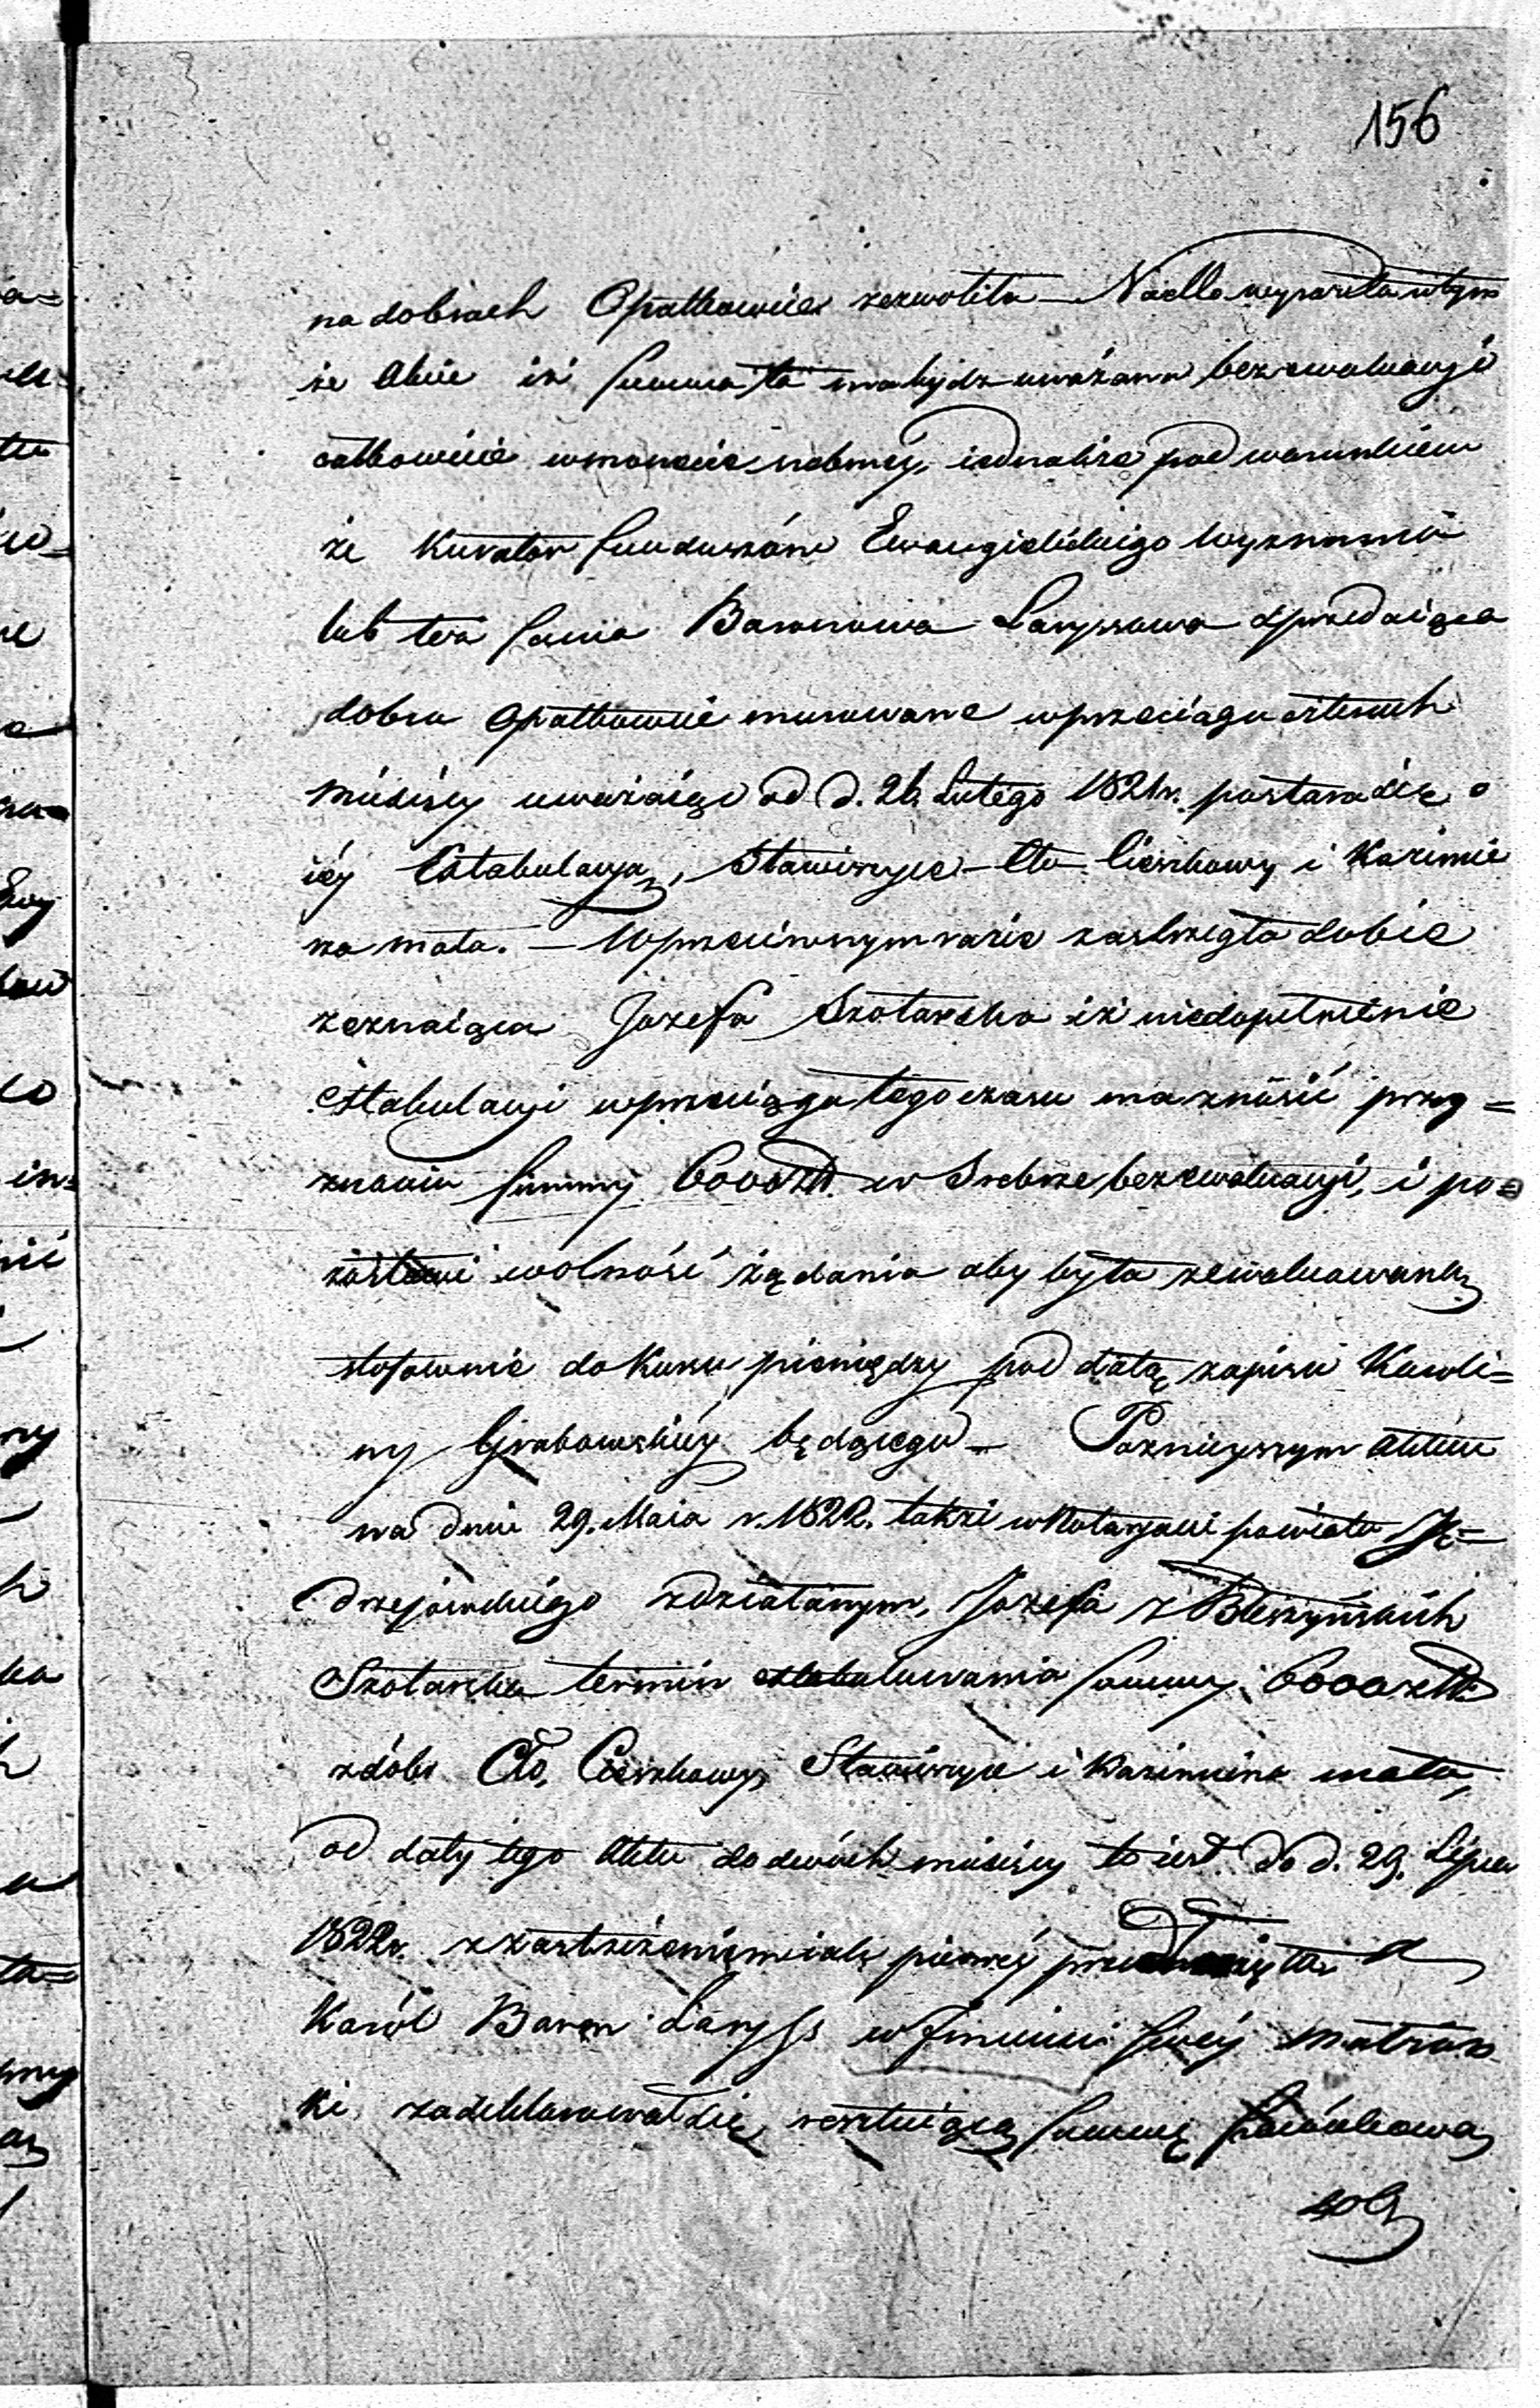 156
na dobrach Opatkowice zezwoliła — Nadto wyraziła w tym
że Akcie iż summa ta ma bydz uważana bez ewaluacyi
całkowicie w monecie srebrnéy, iednakże pod warunkiem
że Kurator funduszów Ewangielickiego Wyznania
lub też sama Baronowa Laryssowa sprzedaiąca
dobra Opatkowice murowane w przeciągu czterech
miesięcy uważaiąc od d. 26 Lutego 1821r. postara się o
iéy Extabulacyą, Stawiszyce — Cło Cieszkowy i Kazimie
rza mała. — W przeciwnym razie zastrzegła sobie
zeznaiąca Jozefa Szolarska iż niedopełnienie
extabulacyi w przeciągu tego czasu ma znosić przy=
znanie summy 6000 złt. w Srebrze bez ewaluacyi, i po=
zostawi wolność żądania aby była zewaluowaną
stosownie do Kursu pieniędzy pod datą zapisu Karoli=
ny Grabowskiéy będącego — Pozniejszym Aktem
na dniu 29. Maia r. 1822. także w Notaryacie powiatu Ję=
drzejowskiego zdziałanym, Jozefa z Bleszyńskich
Szolarska termin extabulowania summy 6000 złt.
z dóbr Cło, Cieszkowy, Stawiszyce i Kazimierza mała,
od daty tego Aktu do dwóch miesięcy to iest do d. 29. Lipca
1822r. z zastrzeżeniem iak pierwéy a
Karól Baron Laryss w Imieniu swéy Małżon
ki zadeklarował się resztuiącą summę szacunkową